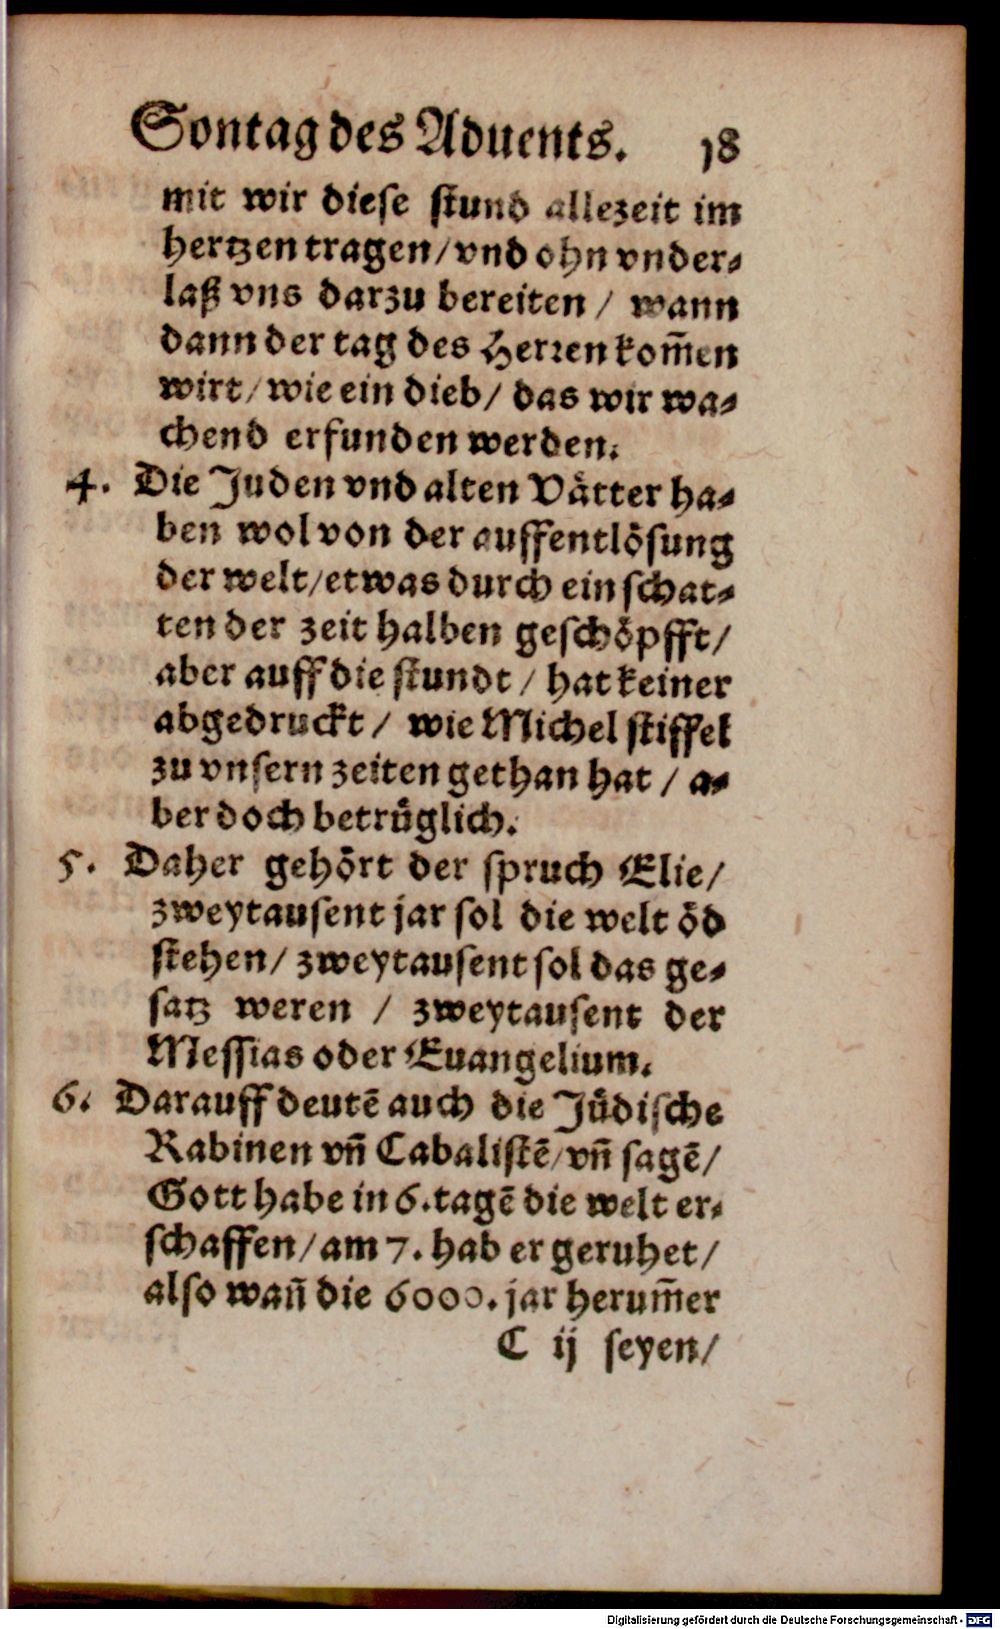 Sontag des Aduents. 18
mit wir diese stund allezeit im
hertzen tragen/ vnd ohn vnder⸗
laß vns darzu bereiten / wann
dann der tag des Herren kom̄en
wirt/ wie ein dieb/ das wir wa⸗
chend erfunden werden.
4. Die Juden vnd alten Vaͤtter ha⸗
ben wol von der auffentloͤsung
der welt/ etwas durch ein schat⸗
ten der zeit halben geschoͤpfft/
aber auff die stundt / hat keiner
abgedruckt / wie Michel stiffel
zu vnsern zeiten gethan hat / a⸗
ber doch betruͤglich.
5. Daher gehoͤrt der spruch Elie/
zweytausent jar sol die welt oͤd
stehen/ zweytausent sol das ge⸗
satz weren / zweytausent der
Messias oder Euangelium.
6. Darauff deutē auch die Juͤdische
Rabinen vn̄ Cabalistē/ vn̄ sagē/
Gott habe in 6. tagē die welt er⸗
schaffen/ am 7. hab er geruhet/
also wan̄ die 6000. jar herum̄er
C ij seyen/
Digitalisierung gefördert durch die Deutsche Forschungsgemeinschaft - DFG